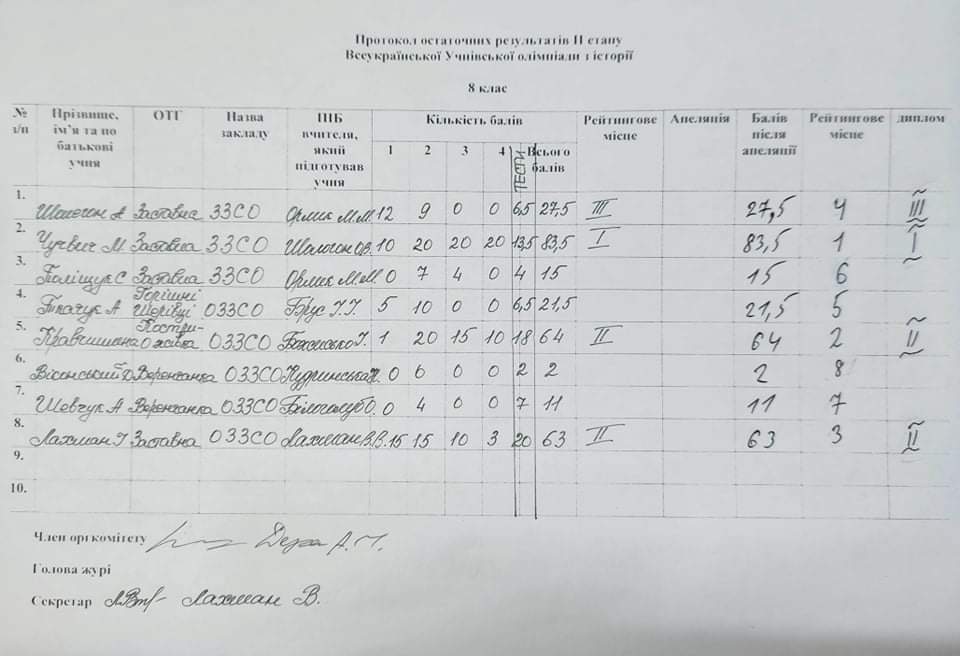 Протокол остаточних результатів ІІ етапу
Всеукраїнської Учнівської олімпіади з історії
8 клас
№ з/п Прізвище, ім'я та по батькові учня ОТГ Назва закладу ПІБ вчителя, який підготував учня Кількість балів 1 2 3 4 ТЕСТИ Всього балів Рейтингове місце Апеляція Балів після апеляції Рейтингове місце диплом
1. Шологон А Заставна ЗЗСО Орлик М.М. 12 9 0 0 6,5 27,5 III 27,5 4 III
2. М Заставна ЗЗСО Шологон О.В. 10 20 20 20 13,5 83,5 I 83,5 1 I
3. Поліщук С Заставна ЗЗСО Орлик М.М. 0 7 4 0 4 15 15 6
4. Ткачук А Горішні Шерівці ОЗЗСО Брус І.І. 5 10 0 0 6,5 21,5 21,5 5
5. ОЗЗСО 1 20 15 10 18 64 II 64 2 II
6. Веренчанка ОЗЗСО 0 6 0 0 2 2 2 8
7. Шевчук А Веренчанка ОЗЗСО 0 4 0 0 7 11 11 7
8. Лахман І Заставна ОЗЗСО Лахман В.В. 15 15 10 3 20 63 II 63 3 II
9.
10.
Член оргкомітету
Голова журі
Секретар Лахман В.